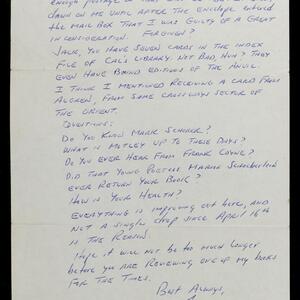 enough postage on
down on me until after the envelope entered
the mail box that I was guilty of a great
inconsideration. Forgiven?
Jack, you have seven cards in the index
file of Cal's library. Not bad, huh? They
even have bound editions of the Anvil.
I think I mentioned receiving a card from
Algren, from some crossways sector of
the Orient.
Questions:
Do you know Mark Schorer?
What is Motley up to these days?
Do you ever hear from Frank Coyne?
Did that young poetess Marion
ever return your book?
How is your health?
Everything is improving out here, and
not a single drop since April 16th
is the reason.
Hope it will not be too much longer
before you are reviewing one of my books
for The Times.
Best Always,